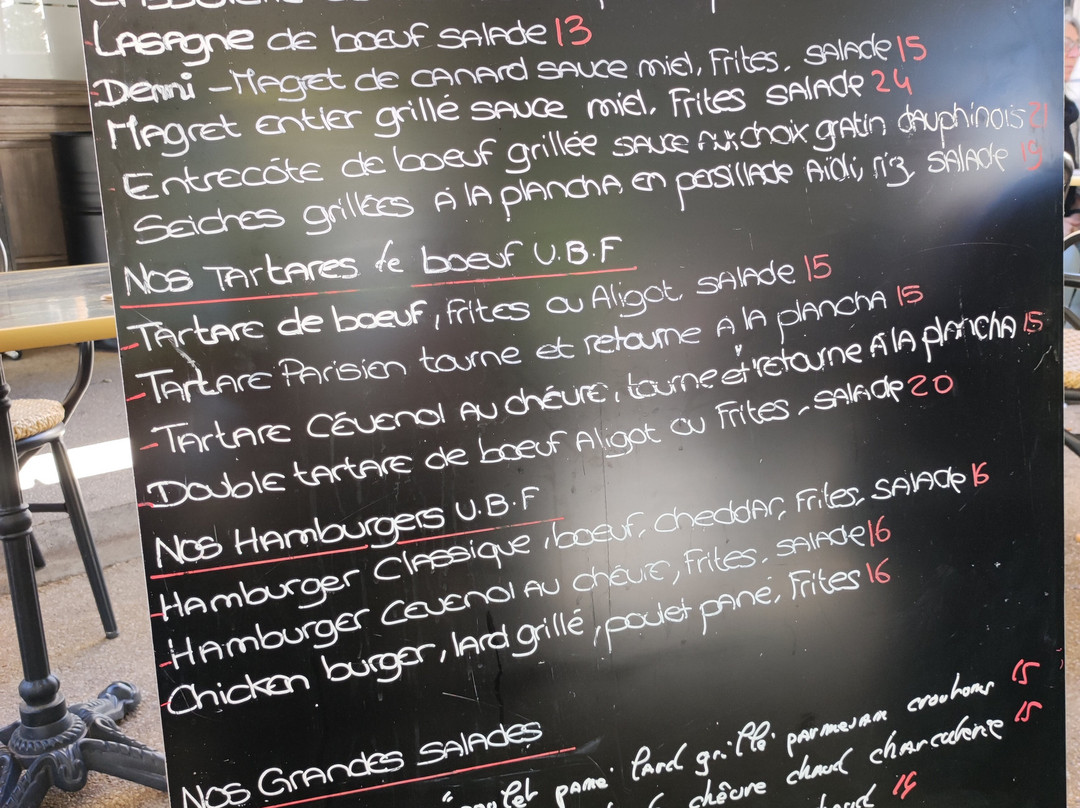 Lasagne de boeuf salade 13
Demi - Magret de canard sauce miel, Frites, salade 15
Magret entier grillé sauce miel, Frites salade 24
Entrecôte de boeuf grillée sauce au choix gratin dauphinois 21
Seiches grillées à la plancha en persillade Aïoli, riz, salade 19
Nos Tartares de boeuf U.B.F
Tartare de boeuf, frites ou Aligot, salade 15
Tartare Parisien tourne et retourne a la plancha 15
Tartare Cévenol au chévre, tourne et retourne A la plancha 15
Double tartare de boeuf Aligot ou Frites, salade 20
Nos Hamburgers U.B.F
Hamburger Classique, boeuf, cheddar, Frites, salade 16
Hamburger cevenol au chévre, Frites, salade 16
Chicken burger, lard grillé, poulet pané, Frites 16
Nos Grandes Salades
pané lard grillé parmesan croutons 15
chêvre chaud charcuterie 15
14